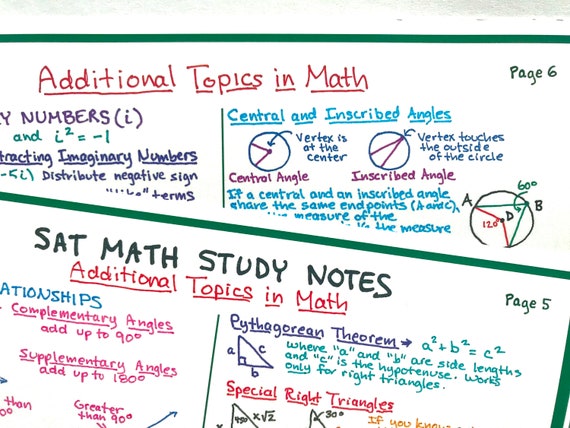 Additional Topics in Math
Page 6
NUMBERS (i)
and i² = -1
Imaginary Numbers
Distribute negative sign
terms
Central and Inscribed Angles
Vertex is
at the
center
Central Angle
Vertex touches
the outside
of the circle
Inscribed Angle
If a central and an inscribed angle
share the same endpoints (A and C),
measure of the
the measure
60°
A
B
D
120°
SAT MATH STUDY NOTES
Additional Topics in Math
Page 5
Complementary Angles
add up to 90°
Supplementary Angles
add up to 180°
than
0°
Greater
than 90°
Pythagorean Theorem → a² + b² = c²
a
c
b
where "a" and "b" are side lengths
and "c" is the hypotenuse. Works
only for right triangles.
Special Right Triangles
45°
x√2
30°
If you know